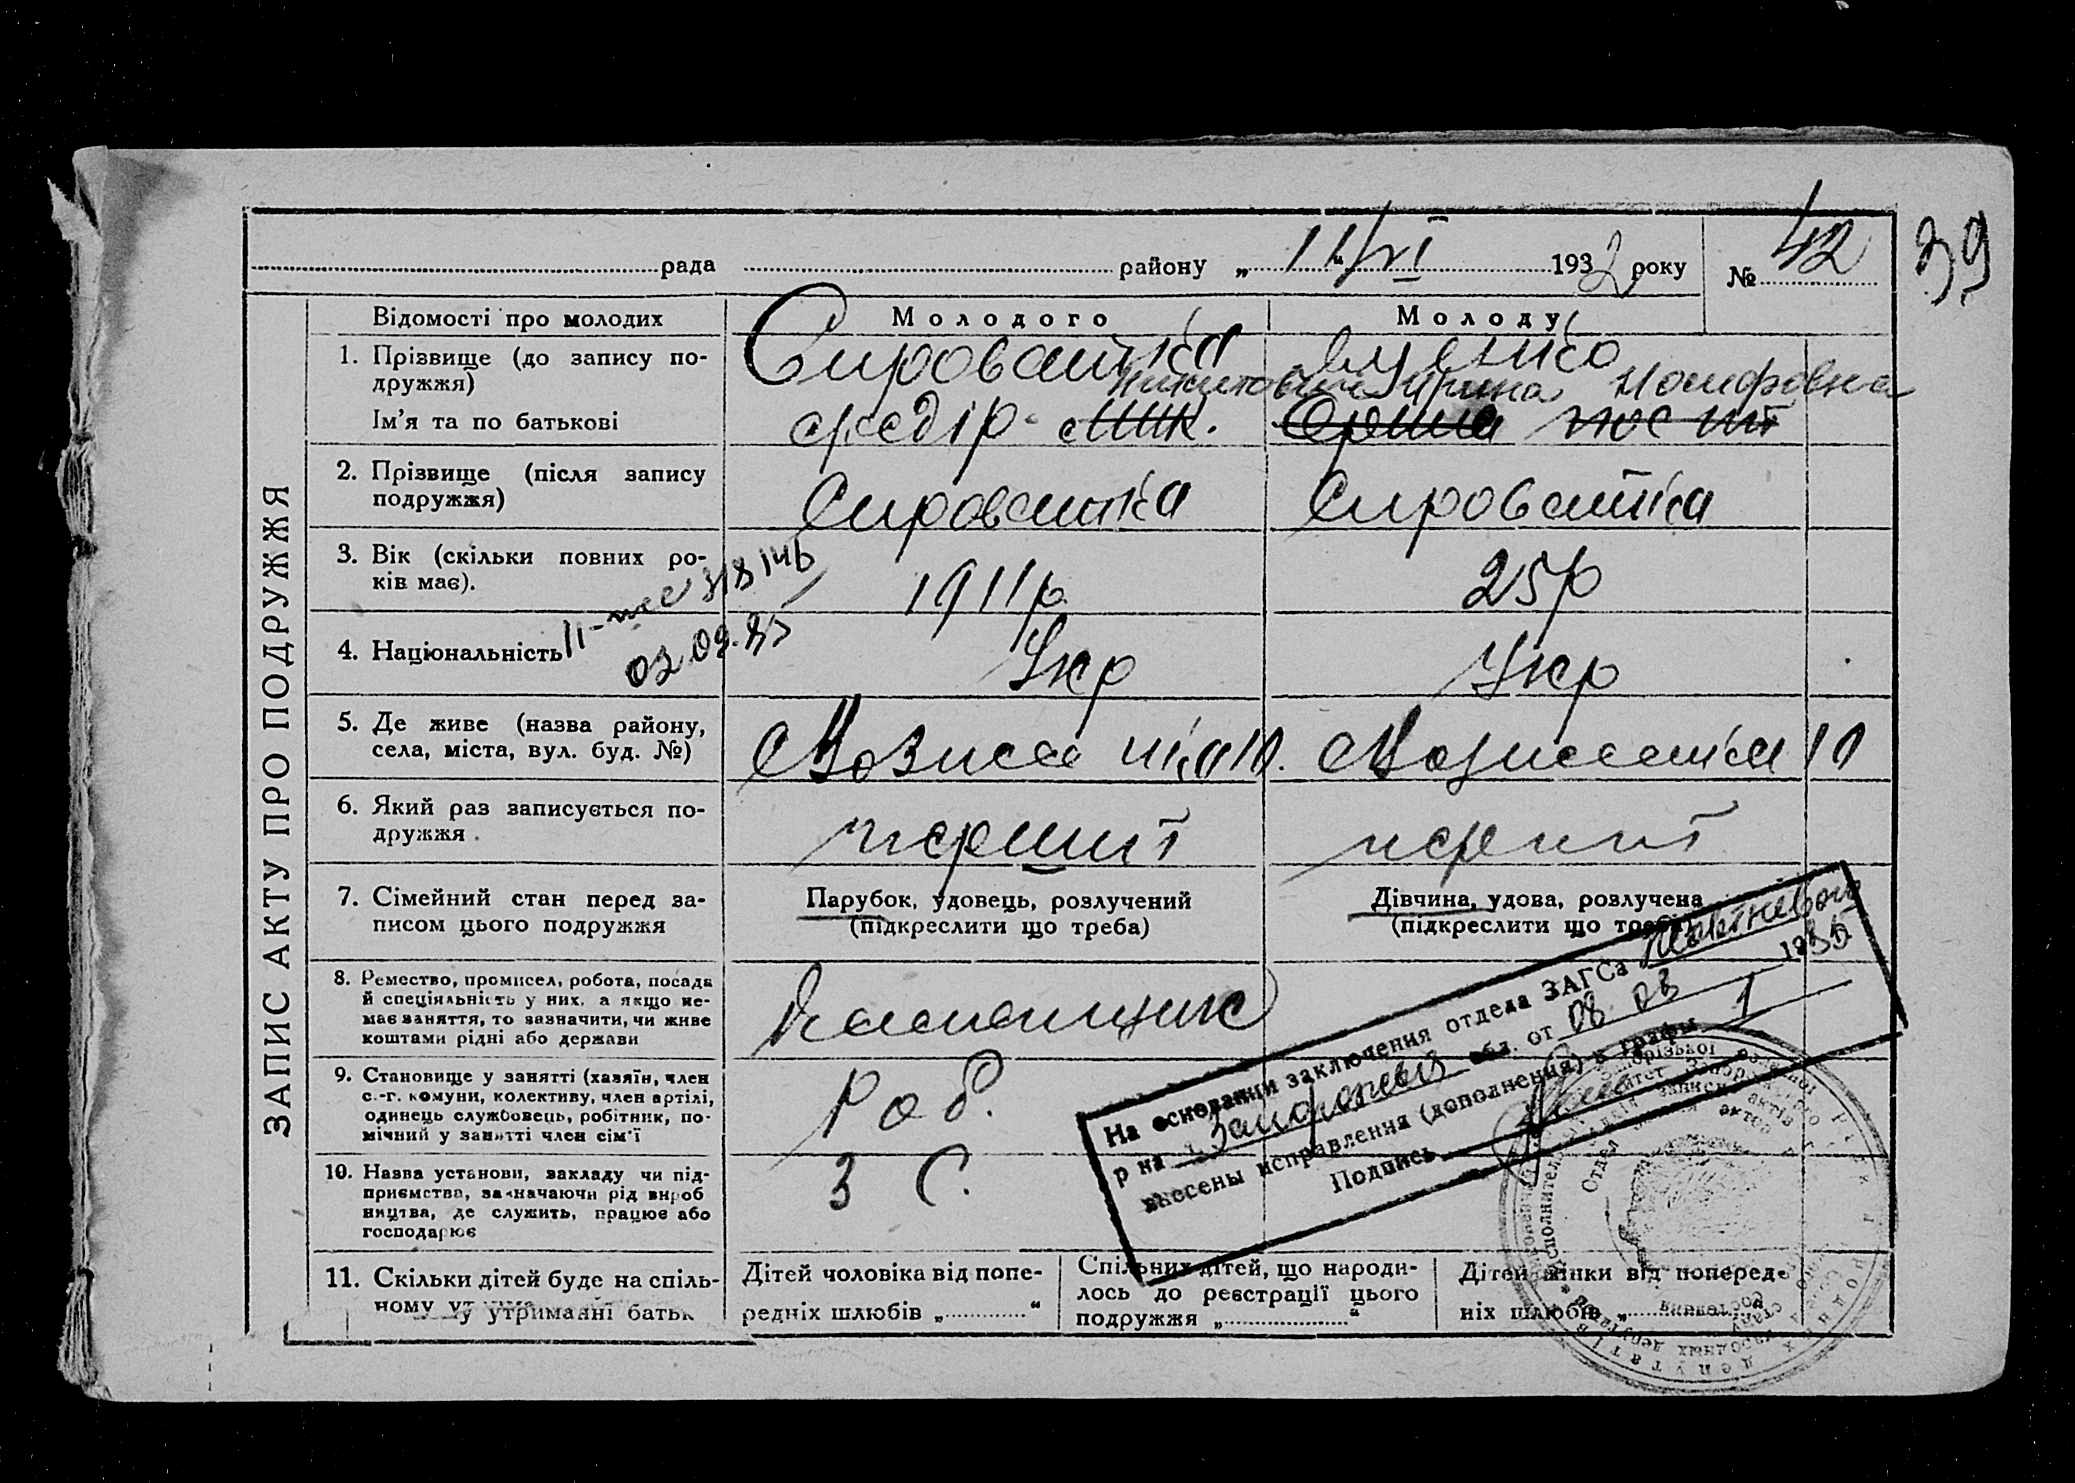 39
рада району „ 11/VI “ 1932 року № 42
ЗАПИС АКТУ ПРО ПОДРУЖЖЯ
Відомості про молодих Молодого Молоду
1. Прізвище (до запису по-
дружжя)
Сироватка Луценко
Никитович Ирина Иосифовна
Ім'я та по батькові Федір Мик. Орина
2. Прізвище (після запису
подружжя)
Сироватка Сироватка
3. Вік (скільки повних ро-
ків має).
1911р. 25р
4. Національність Укр Укр
02.09.85
5. Де живе (назва району,
села, міста, вул. буд. №)
6. Який раз записується по-
дружжя
перший перший
7. Сімейний стан перед за-
писом цього подружжя
Парубок, удовець, розлучений
(підкреслити що треба)
Дівчина, удова, розлучена
(підкреслити що треба)
8. Ремество, промисел, робота, посада
й спеціяльність у них, а якщо не-
має заняття, то зазначити, чи живе
коштами рідні або держави
9. Становище у занятті (хазяїн, член
с.-г. комуни, колективу, член артілі,
одинець службовець, робітник, по-
мічний у занятті член сім'ї
Роб.
10. Назва установи, закладу чи під-
приємства, зазначаючи рід вироб
ництва, де служить, працює або
господарює
З С.
11. Скільки дітей буде на спіль-
ному утриманні батьк
Дітей чоловіка від попе-
редніх шлюбів „ “
Спільних дітей, що народи-
лось до реєстрації цього
подружжя „ “
Дітей жінки від поперед-
ніх шлюбів „
На основании заключения отдела ЗАГСа
р на Запорожской обл. от 08 08 1985
внесены исправления (дополнения) в графы 1
Подпись